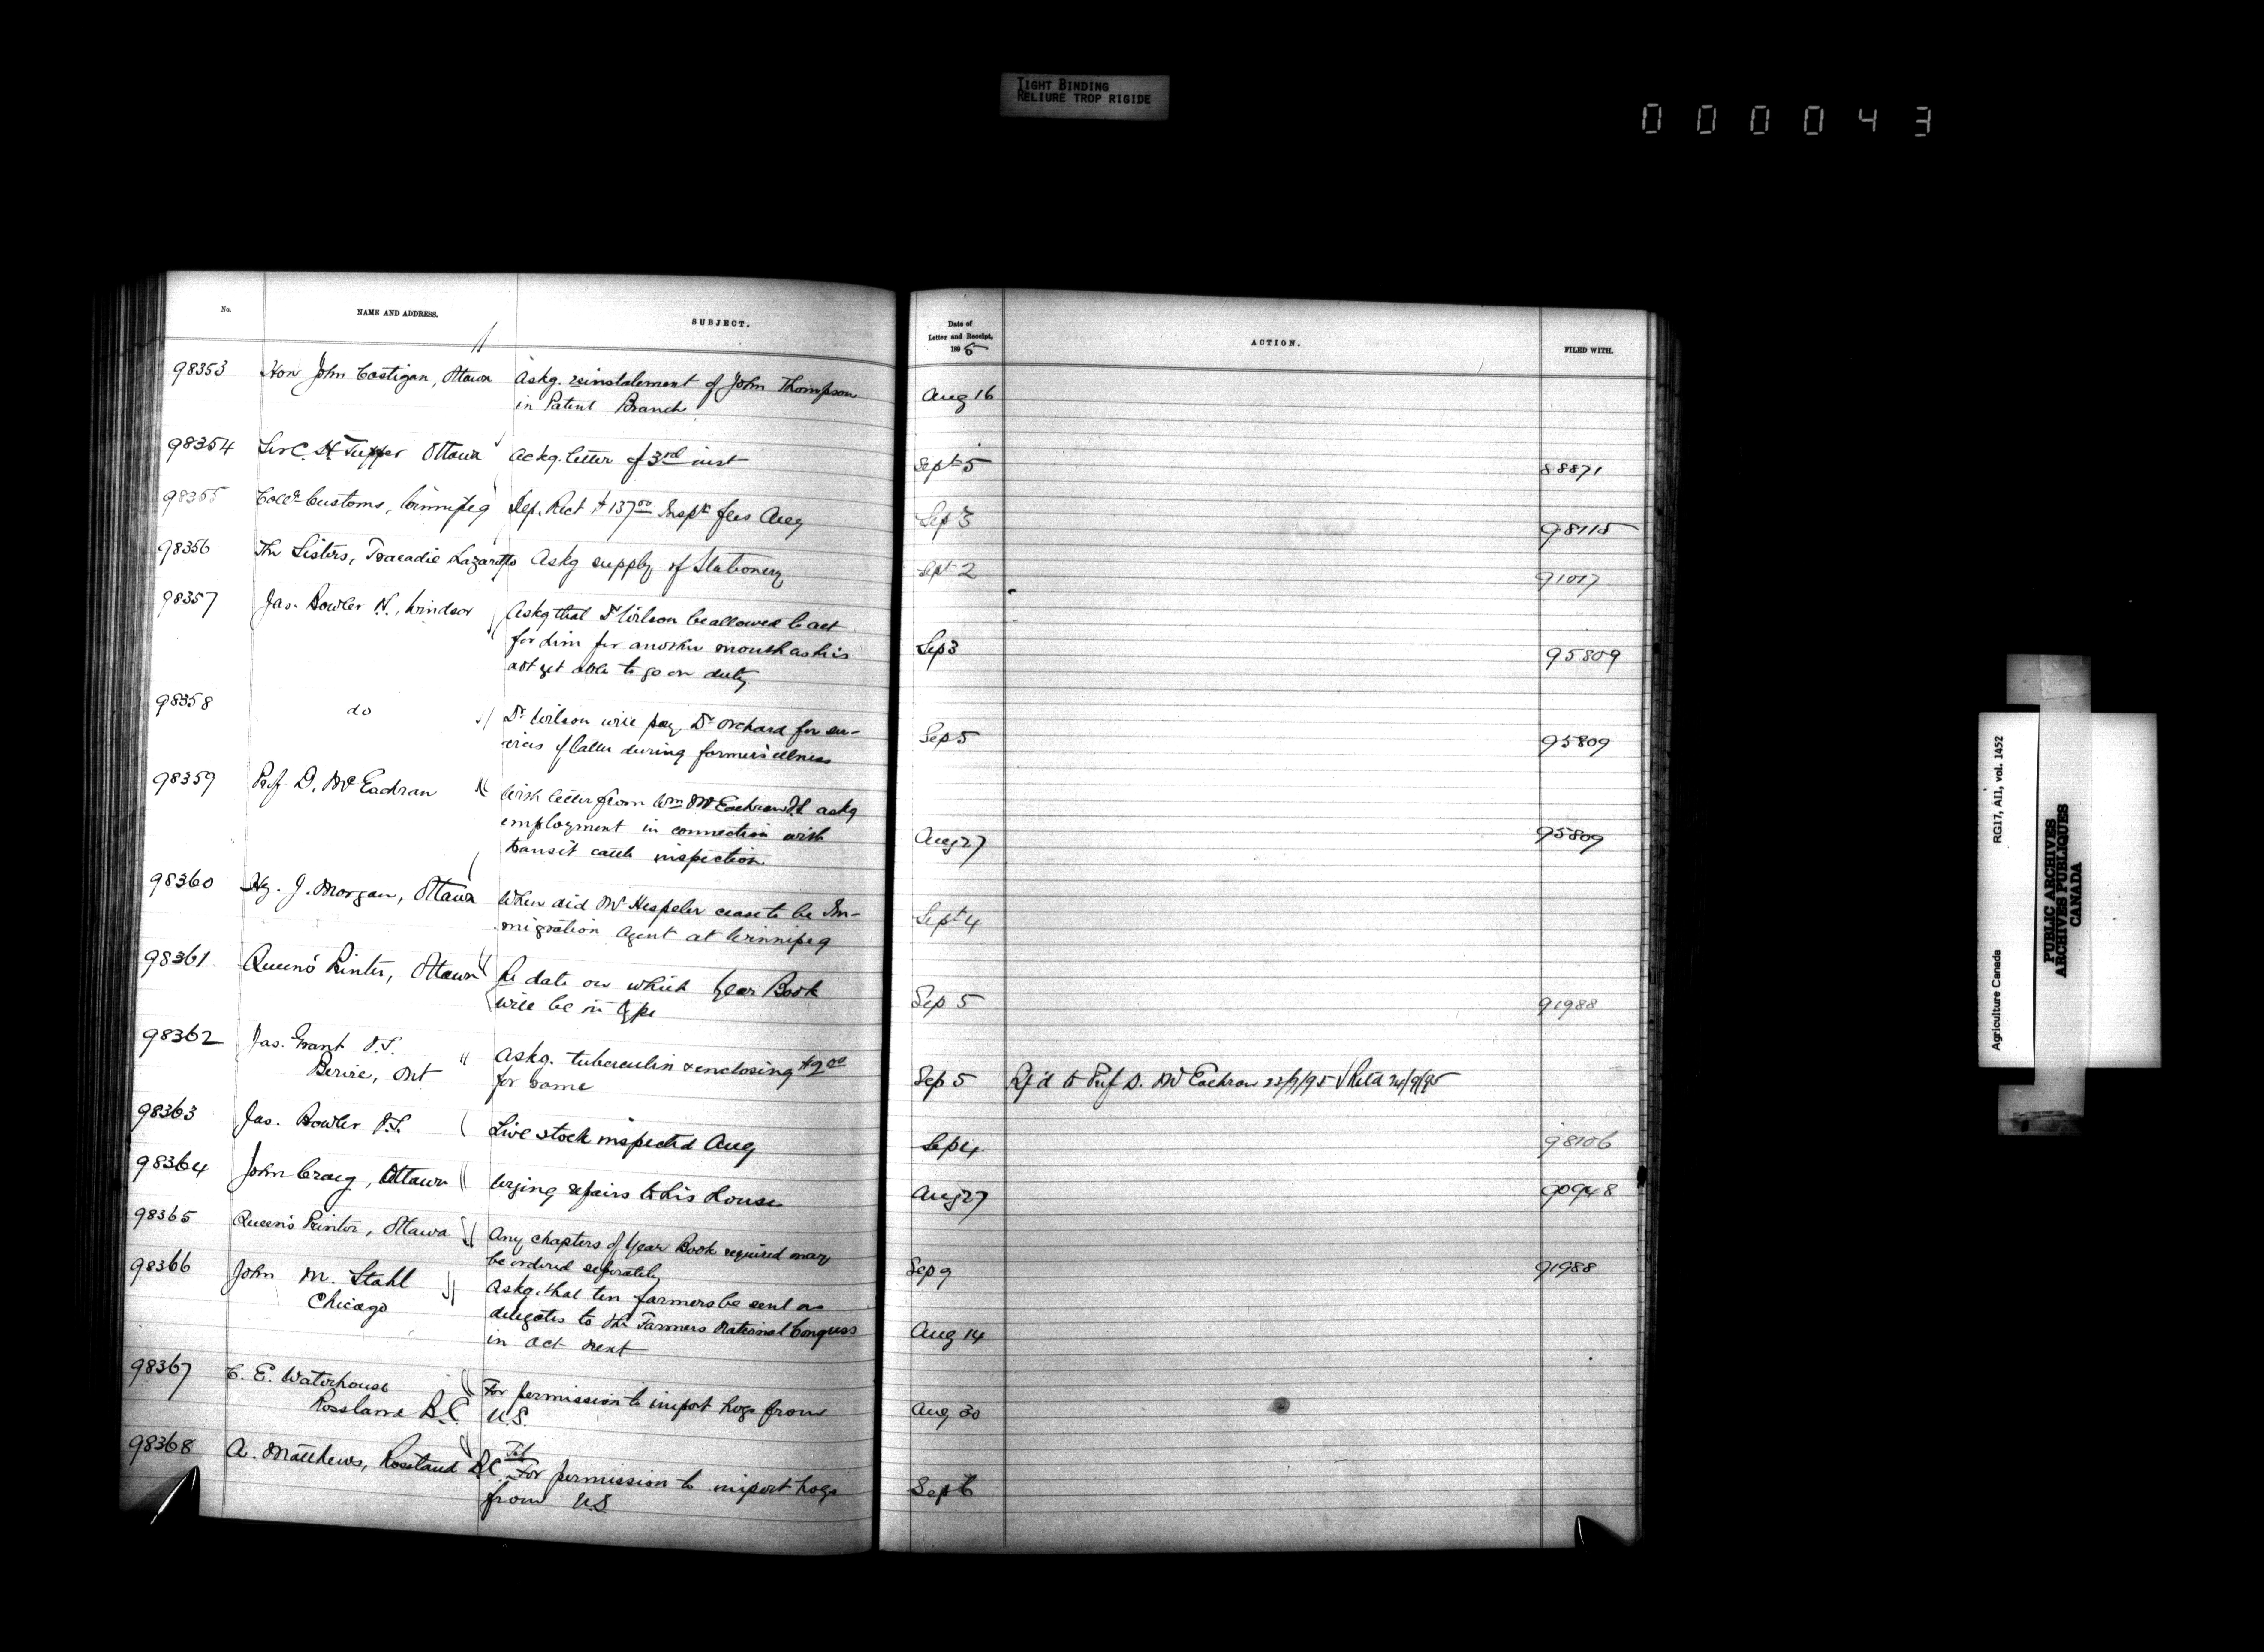 TIGHT BINDING
RELIURE TROP RIGIDE
000043
No.
NAME AND ADDRESS.
SUBJECT.
98353 Hon John Costigan, Ottawa Askg. reinstalement of John Thompson
in Patent Branch
98354 Sir C. H. Tupper Ottawa Ackg. letter of 3rd inst
98355 Collr Customs, Winnipeg Dep. Rect $137.00 Inspn fees Aug
98356 The Sisters, Tracadie Lazaretto Askg supply of Stationery
98357 Jas. Bowler V.S., Windsor Askg that Dr Wilson be allowed to act
for him for another month as he is
not yet able to go on duty.
98358 do Dr Wilson will pay Dr Orchard for ser-
vices of latter during former's illness
98359 Prof D. McEachran With letter from Wm McEachran V.S. askg
employment in connection with
transit cattle inspection
98360 Hy. J. Morgan, Ottawa When did Mr Hespeler cease to be Im-
migration Agent at Winnipeg
98361 Queen's Printer, Ottawa Re date on which Year Book
will be in type
98362 Jas. Grant V.S. Askg. tuberculin & enclosing $2.00
Bervie, Ont for same
98363 Jas. Bowler V.S. Live stock inspected Aug
98364 John Craig, Ottawa Urging repairs to his house
98365 Queen's Printer, Ottawa Any chapters of Year Book required may
be ordered separately
98366 John M. Stahl Askg. that ten farmers be sent as
Chicago delegates to the Farmers National Congress
in Oct next
98367 C. E. Waterhouse For permission to import hogs from
Rossland B.C. U.S.
98368 A. Matthews, Rossland B.C. Tel For permission to import hogs
from U.S
Date of
Letter and Receipt,
1895
ACTION.
FILED WITH.
Aug 16
Sept 5 88871
Sep 3 98115
Sept 2 91017
Sep 3 95809
Sep 5 95809
Aug 27 95809
Sept 4
Sep 5 91988
Sep 5 Rfd to Prof D. McEachran 23/9/95 Retd 24/9/95
Sep 4 98106
Aug 27 90948
Sep 9 91988
Aug 14
Aug 30
Sept 6
Agriculture Canada RG17, AII, vol. 1452
PUBLIC ARCHIVES
ARCHIVES PUBLIQUES
CANADA